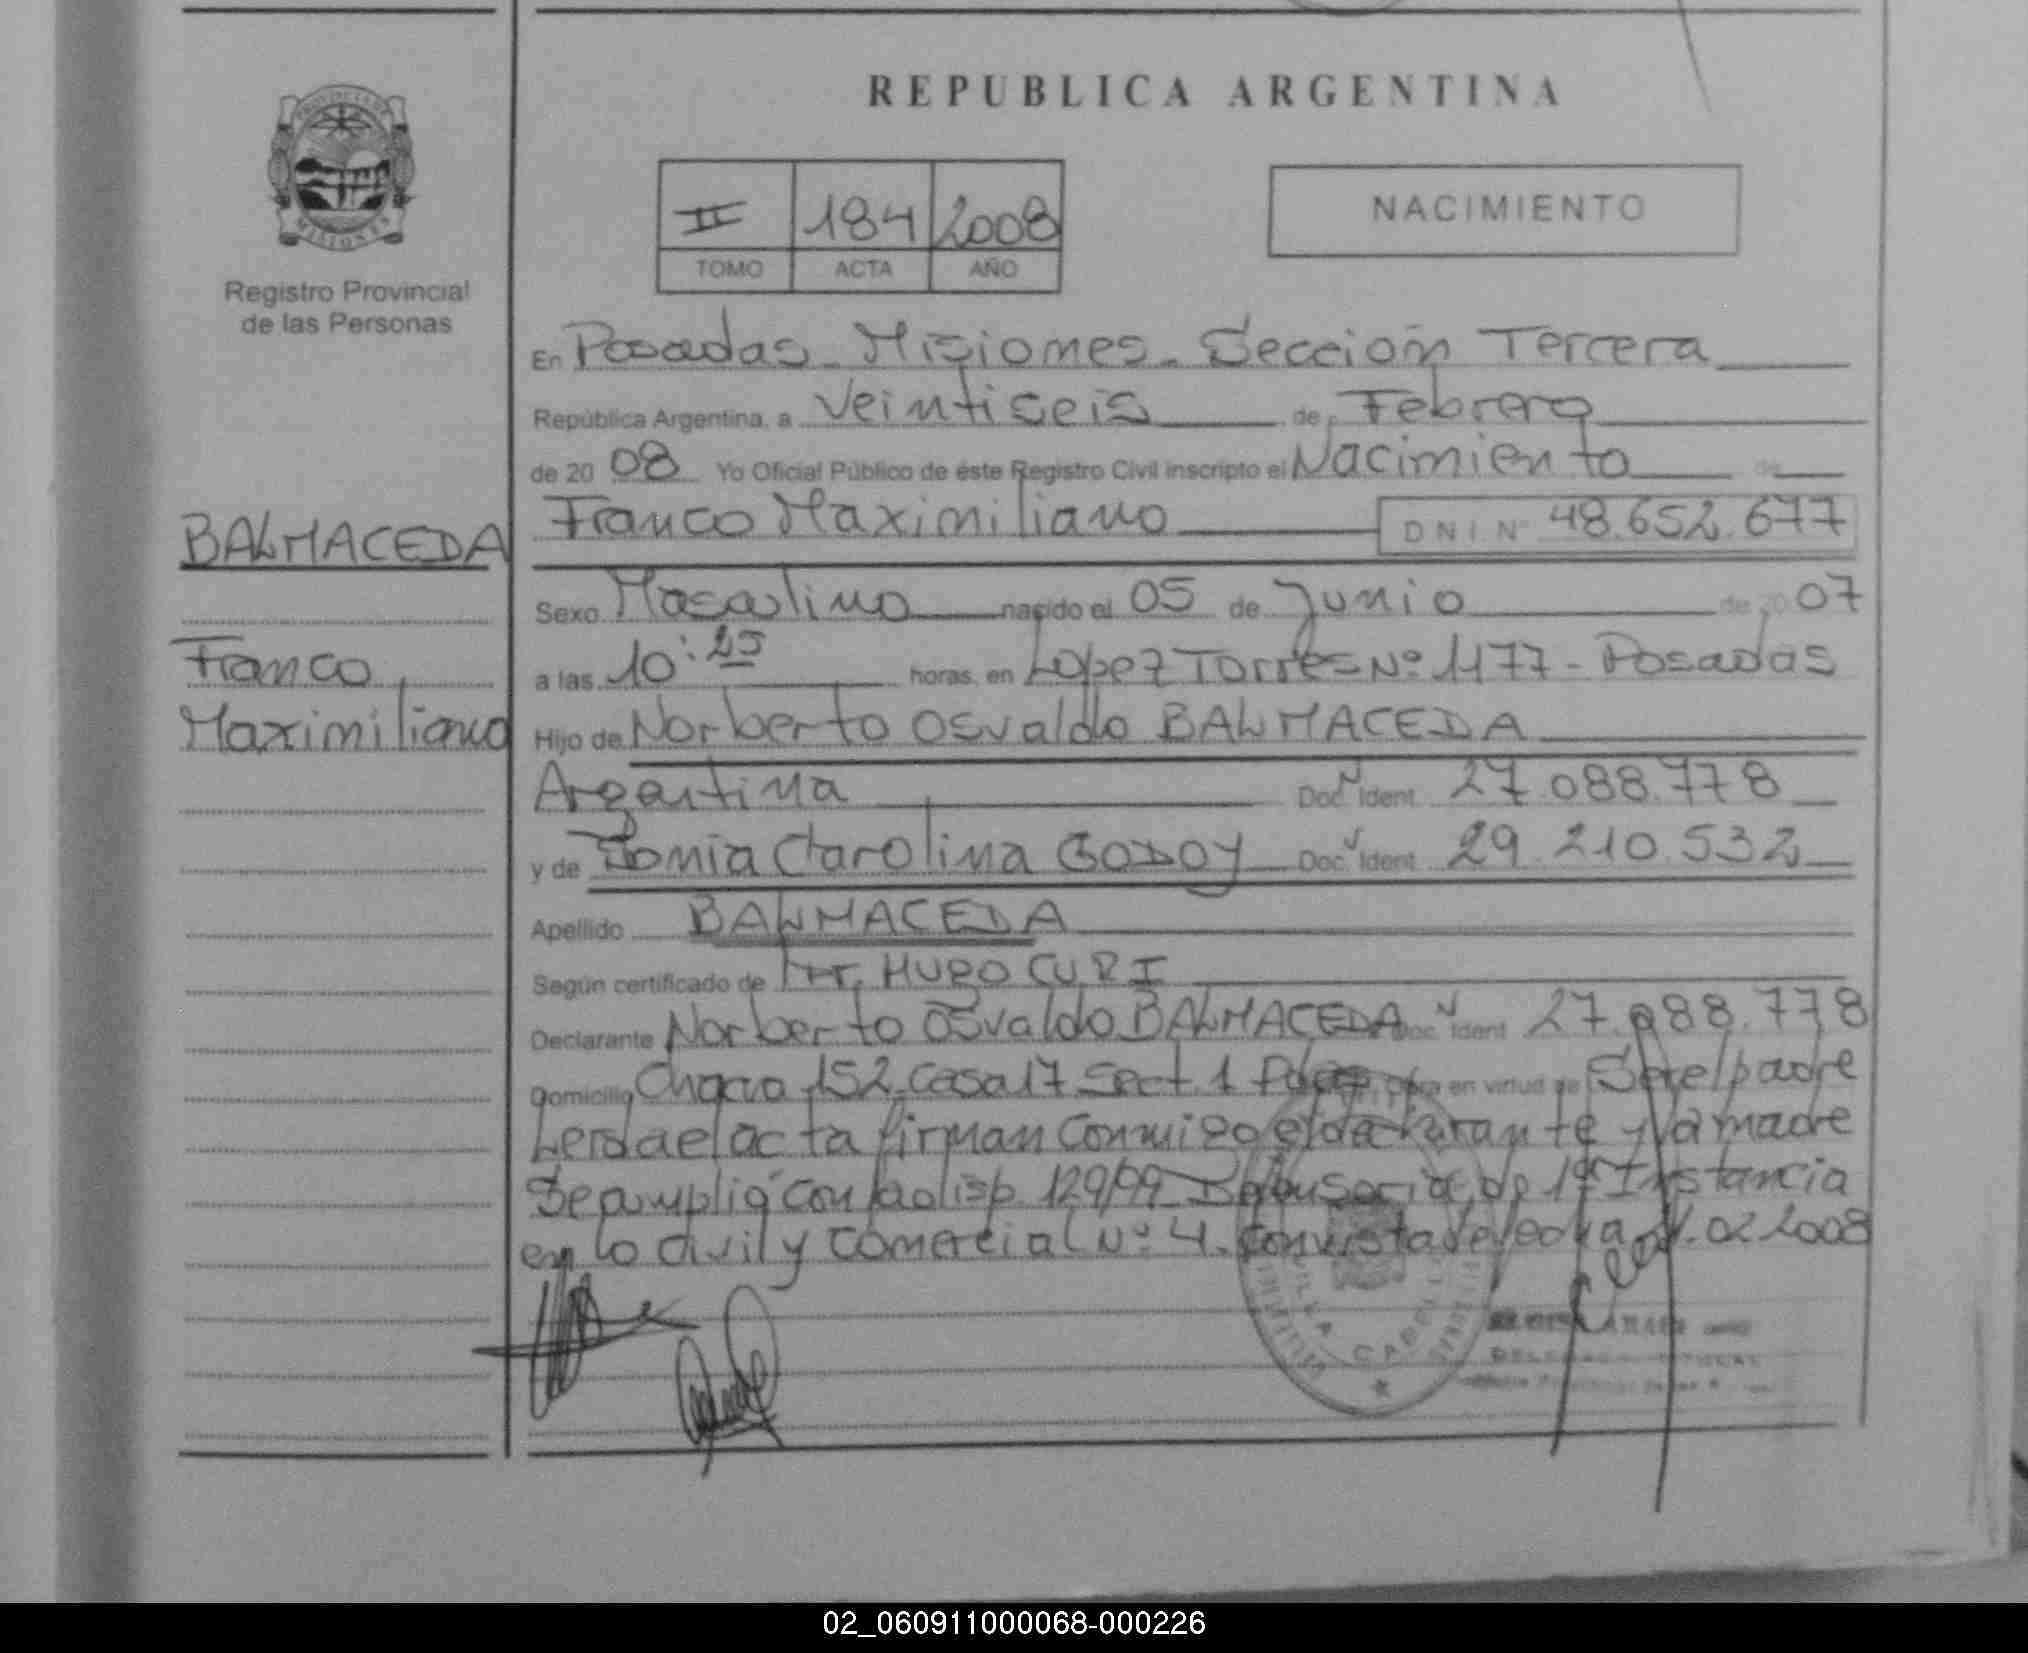 REPUBLICA ARGENTINA
PROVINCIA DE
MISIONES
Registro Provincial
de las Personas
II 184 2008
TOMO ACTA AÑO
NACIMIENTO
En Posadas - Misiones - Sección Tercera
República Argentina, a Veintiseis de Febrero
de 20 08 Yo Oficial Público de éste Registro Civil inscripto el Nacimiento de
BALMACEDA
Franco Maximiliano DNI Nº 48.652.677
Sexo Masculino nacido el 05 de Junio de 20 07
Franco
a las 10:25 horas, en Lopez Torres Nº 1177 - Posadas
Maximiliano
Hijo de Norberto Osvaldo BALMACEDA
Argentina Doc. Ident. 27.088.778
y de Sonia Carolina GODOY Doc. Ident. 29.210.532
Apellido BALMACEDA
Según certificado de HUGO CURI
Declarante Norberto Osvaldo BALMACEDA Doc. Ident 27.088.778
Domicilio Chaco 152 Casa 17 Sect. 1 Pdas en virtud de Ser el padre
Leida el acta firman conmigo el declarante y la madre
Se cumplió con la disp. 129/99 Defensoria de 1º Instancia
en lo Civil y Comercial Nº 4. con vista de fecha 02 2008
02_060911000068-000226